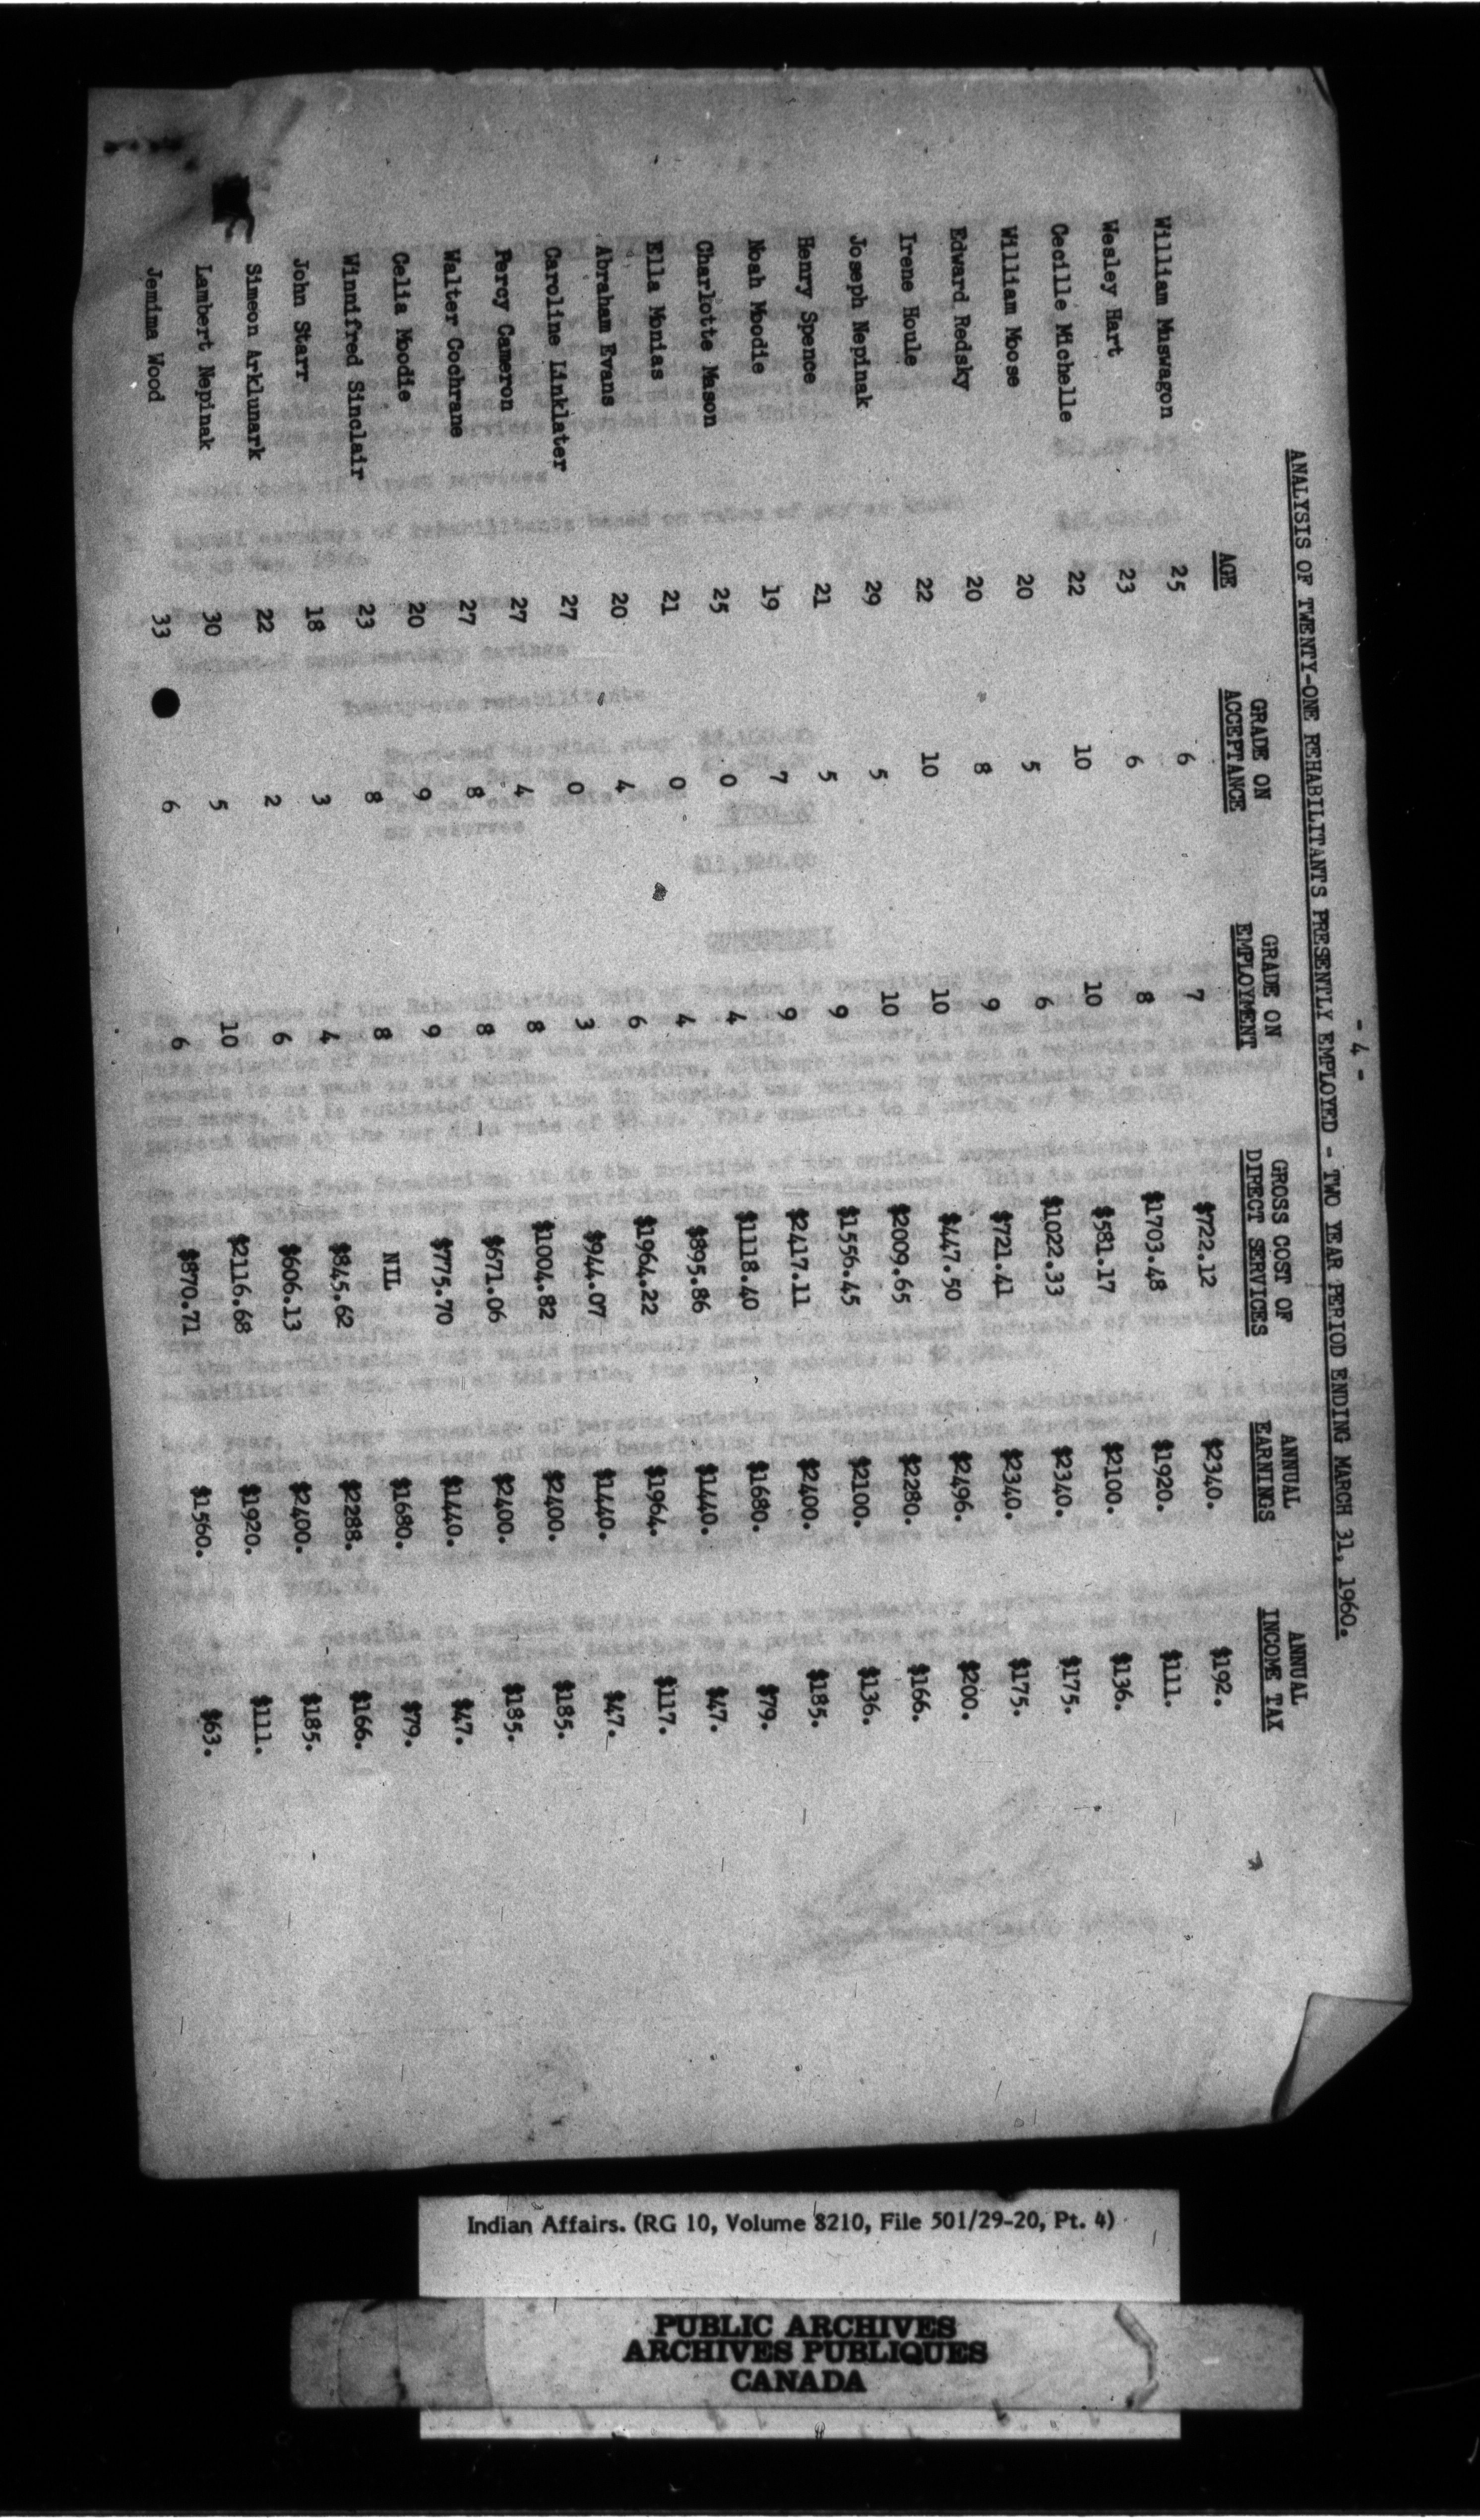 - 4 -
ANALYSIS OF TWENTY-ONE REHABILITANTS PRESENTLY EMPLOYED - TWO YEAR PERIOD ENDING MARCH 31, 1960.
AGE GRADE ON ACCEPTANCE GRADE ON EMPLOYMENT GROSS COST OF DIRECT SERVICES ANNUAL EARNINGS ANNUAL INCOME TAX
William Muswagon 25 6 7 $722.12 $2340. $192.
Wesley Hart 23 6 8 $1703.48 $1920. $111.
Cecille Michelle 22 10 10 $581.17 $2100. $136.
William Moose 20 5 6 $1022.33 $2340. $175.
Edward Redsky 20 8 9 $721.41 $2340. $175.
Irene Houle 22 10 10 $447.50 $2496. $200.
Joseph Nepinak 29 5 10 $2009.65 $2280. $166.
Henry Spence 21 5 9 $1556.45 $2100. $136.
Noah Moodie 19 7 9 $2417.11 $2400. $185.
Charlotte Mason 25 0 4 $1118.40 $1680. $79.
Ella Monias 21 0 4 $895.86 $1440. $47.
Abraham Evans 20 4 6 $1964.22 $1964. $117.
Caroline Linklater 27 0 3 $944.07 $1440. $47.
Percy Cameron 27 4 8 $1004.82 $2400. $185.
Walter Cochrane 27 8 8 $671.06 $2400. $185.
Celia Moodie 20 9 9 $775.70 $1440. $47.
Winnifred Sinclair 23 8 8 NIL $1680. $79.
John Starr 18 3 4 $845.62 $2288. $166.
Simeon Arklunark 22 2 6 $606.13 $2400. $185.
Lambert Nepinak 30 5 10 $2116.68 $1920. $111.
Jemima Wood 33 6 6 $870.71 $1560. $63.
Indian Affairs. (RG 10, Volume 8210, File 501/29-20, Pt. 4)
PUBLIC ARCHIVES
ARCHIVES PUBLIQUES
CANADA